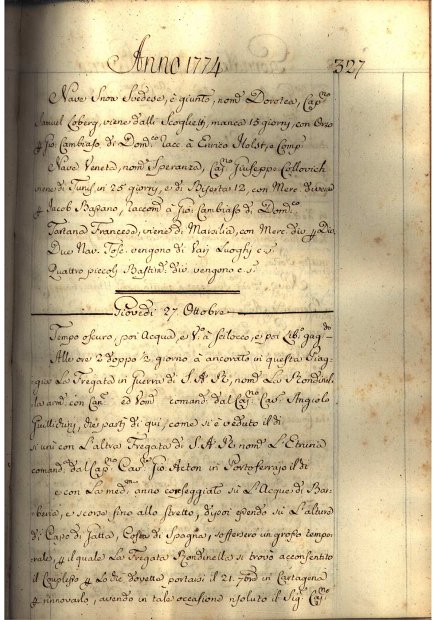 Anno 1774
327
Nave Snow Svedese, è giunto, nomᵃ Dorotea, Capⁿᵒ
Samuel Coberg, viene dalli Scoglietti, manca 15 giorni, con Orzo
Gio: Cambiaso di Domᶜᵒ racc à Enrico Holst, e Comp
Nave Veneta, nomᵃ Speranza, Capⁿᵒ Giuseppe Collovich
viene di Tunis in 25 giorni, e di Biserta 12, con Merc. diverse
Jacob Bassano, raccomᵗᵃ à Gio: Cambiaso di Domᶜᵒ
Tartana Francese, viene di Marsilia, con Merc. div
Due Nav. Tosc. vengono di Varij Luoghi e s
Quattro piccoli Bastimᵗⁱ div. vengono e s
Giovedì 27 Ottobre
Tempo oscuro, poi Acqua, e Vᵗᵒ à Scilocco, e poi Lib.
Alle ore 2 doppo ½ giorno à ancorato in questa Piag-
gia La Fregata in Guerra di S. A. R., nomᵃ La Rondinel-
la armᵗᵃ con Canⁿⁱ ed Uomⁱ comandᵗᵃ dal Capⁿᵒ Cavʳᵉ Angiolo
di qui, come si è veduto il dì
si unì con L'altra Fregata di S. A. R. nomᵃ L'Etruria
comandᵗᵃ dal Capⁿᵒ Cavʳᵉ Gio: Acton in Portoferrajo il dì
e con La medᵐᵃ anno corseggiato sù L'Acque di Bar-
beria, e scorso fino allo stretto, dipoi essendo sù L'altura
di Capo di Gatta, Costa di Spagna, soffersero un grosso tempo-
rale, il quale La Fregata Rondinella si trovò acconsentito
il Coupresso Lo che dovette portarsi il 21. 7bre in Cartagena
rinnovarlo, avendo in tale occasione risoluto il Sigʳ Capⁿᵒ